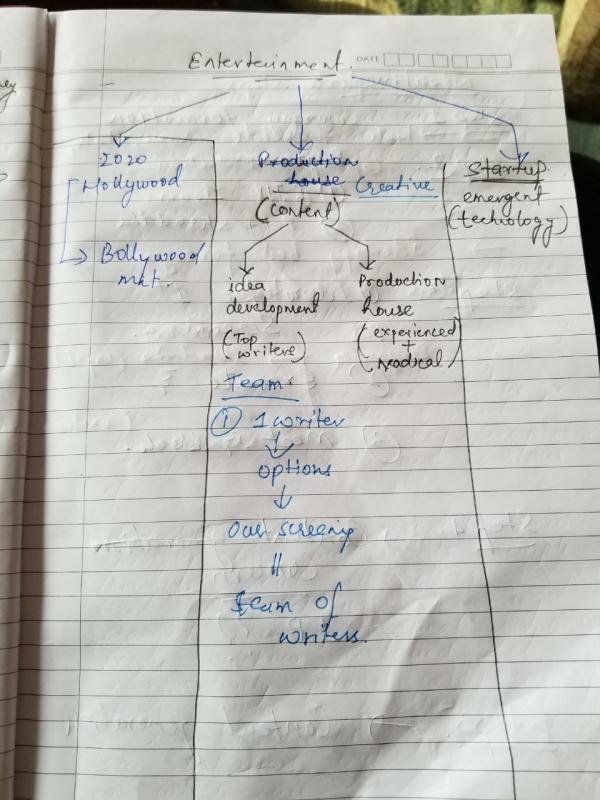 Entertainment.
DATE
2020
Hollywood
Bollywood
mkt.
Production
house
Creative
(Content)
idea
development
(Top
writers)
Production
house
(experienced
+
Team:
① 1 writer
options
Our screening
||
team of
writers.
Startup.
emergent
(techology)